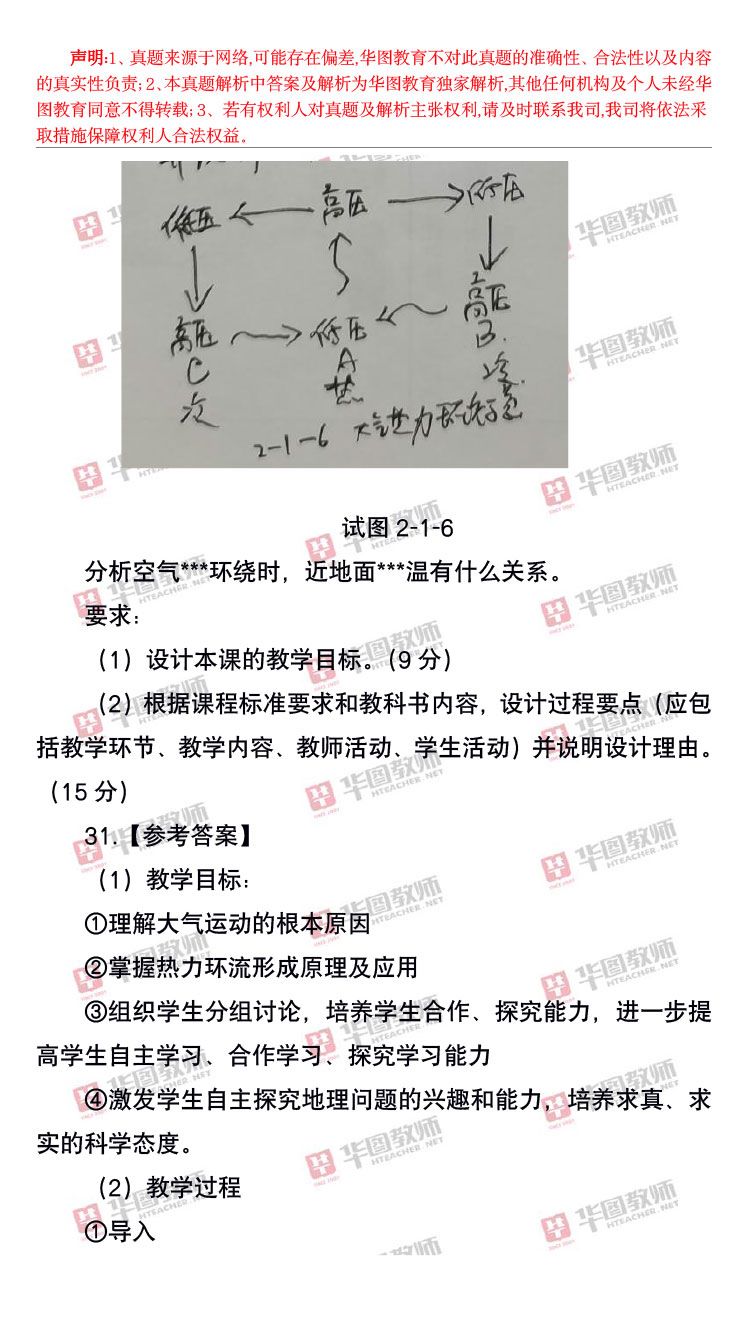 声明:1、真题来源于网络,可能存在偏差,华图教育不对此真题的准确性、合法性以及内容
的真实性负责; 2、本真题解析中答案及解析为华图教育独家解析,其他任何机构及个人未经华
图教育同意不得转载; 3、若有权利人对真题及解析主张权利,请及时联系我司,我司将依法采
取措施保障权利人合法权益。
低压 ← 高压 → 低压
高压 → 低压 ← 高压
C A B
热
2-1-6 大气热力环流示意
试图 2-1-6
分析空气***环绕时，近地面***温有什么关系。
要求：
（1）设计本课的教学目标。（9 分）
（2）根据课程标准要求和教科书内容，设计过程要点（应包
括教学环节、教学内容、教师活动、学生活动）并说明设计理由。
（15 分）
31.【参考答案】
（1）教学目标：
①理解大气运动的根本原因
②掌握热力环流形成原理及应用
③组织学生分组讨论，培养学生合作、探究能力，进一步提
高学生自主学习、合作学习、探究学习能力
④激发学生自主探究地理问题的兴趣和能力，培养求真、求
实的科学态度。
（2）教学过程
①导入
华图教师
HTEACHER.NET